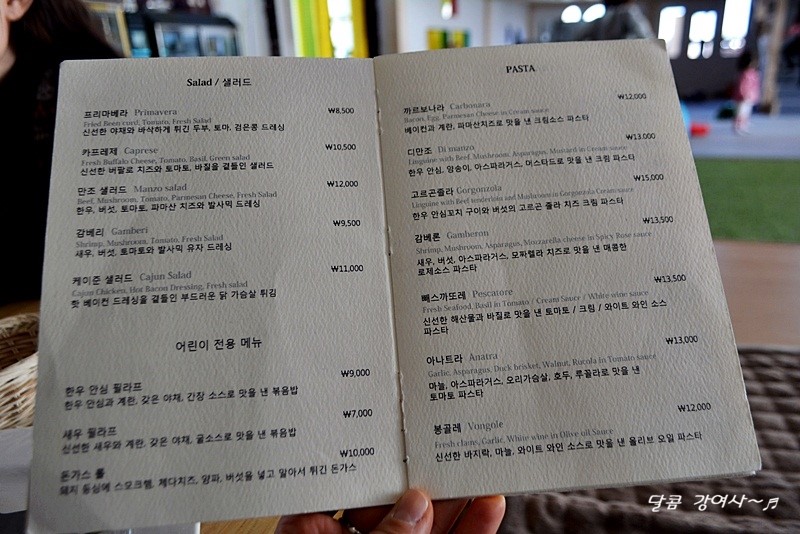 Salad / 샐러드
프리마베라 Primavera ₩8,500
Fried Been curd, Tomato, Fresh Salad
신선한 야채와 바삭하게 튀긴 두부, 토마, 검은콩 드레싱
카프레제 Caprese ₩10,500
Fresh Buffalo Cheese, Tomato, Basil, Green salad
신선한 버팔로 치즈와 토마토, 바질을 곁들인 샐러드
만조 샐러드 Manzo salad ₩12,000
Beef, Mushroom, Tomato, Parmesan Cheese, Fresh Salad
한우, 버섯, 토마토, 파마산 치즈와 발사믹 드레싱
감베리 Gamberi ₩9,500
Shrimp, Mushroom, Tomato, Fresh Salad
새우, 버섯, 토마토와 발사믹 유자 드레싱
케이준 샐러드 Cajun Salad ₩11,000
Cajun Chicken, Hot Bacon Dressing, Fresh salad
핫 베이컨 드레싱을 곁들인 부드러운 닭 가슴살 튀김
어린이 전용 메뉴
한우 안심 필라프 ₩9,000
한우 안심과 계란, 갖은 야채, 간장 소스로 맛을 낸 볶음밥
새우 필라프 ₩7,000
신선한 새우와 계란, 갖은 야채, 굴소스로 맛을 낸 볶음밥
돈가스 롤 ₩10,000
돼지 등심에 스모크햄, 체다치즈, 양파, 버섯을 넣고 말아서 튀긴 돈가스
PASTA
까르보나라 Carbonara ₩12,000
Bacon, Egg, Parmesan Cheese in Cream sauce
베이컨과 계란, 파마산치즈로 맛을 낸 크림소스 파스타
디만조 Di manzo ₩13,000
Linguine with Beef, Mushroom, Asparagus, Mustard in Cream sauce
한우 안심, 양송이, 아스파라거스, 머스타드로 맛을 낸 크림 파스타
고르곤졸라 Gorgonzola ₩15,000
Linguine with Beef tenderloin and Mushroom in Gorgonzola Cream sauce
한우 안심꼬치 구이와 버섯의 고르곤 졸라 치즈 크림 파스타
감베론 Gamberon ₩13,500
Shrimp, Mushroom, Asparagus, Mozzarella cheese in Spicy Rose sauce
새우, 버섯, 아스파라거스, 모짜렐라 치즈로 맛을 낸 매콤한
로제소스 파스타
빼스까또레 Pescatore ₩13,500
Fresh Seafood, Basil in Tomato / Cream Sauce / White wine sauce
신선한 해산물과 바질로 맛을 낸 토마토 / 크림 / 와이트 와인 소스
파스타
아나트라 Anatra ₩13,000
Garlic, Asparagus, Duck brisket, Walnut, Rucola in Tomato sauce
마늘, 아스파라거스, 오리가슴살, 호두, 루꼴라로 맛을 낸
토마토 파스타
봉골레 Vongole ₩12,000
Fresh clams, Garlic, White wine in Olive oil Sauce
신선한 바지락, 마늘, 와이트 와인 소스로 맛을 낸 올리브 오일 파스타
달콤 강여사~♬